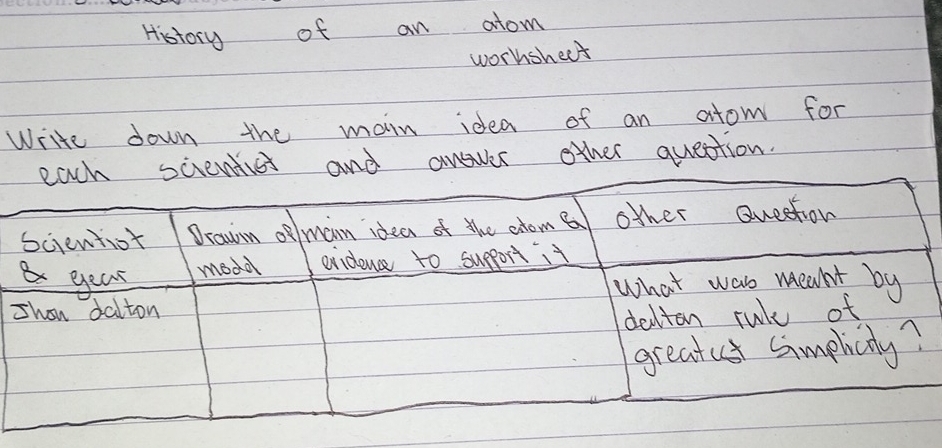 History of an atom
worksheet
Write down the main idea of an atom for
each scientist and answer other question.
Scientist & year
Drawin of modd
main idea of the atom & evidence to support it
Other Question
Jhon dalton
What was meant by
dalton rule of
greatest Simplicity?